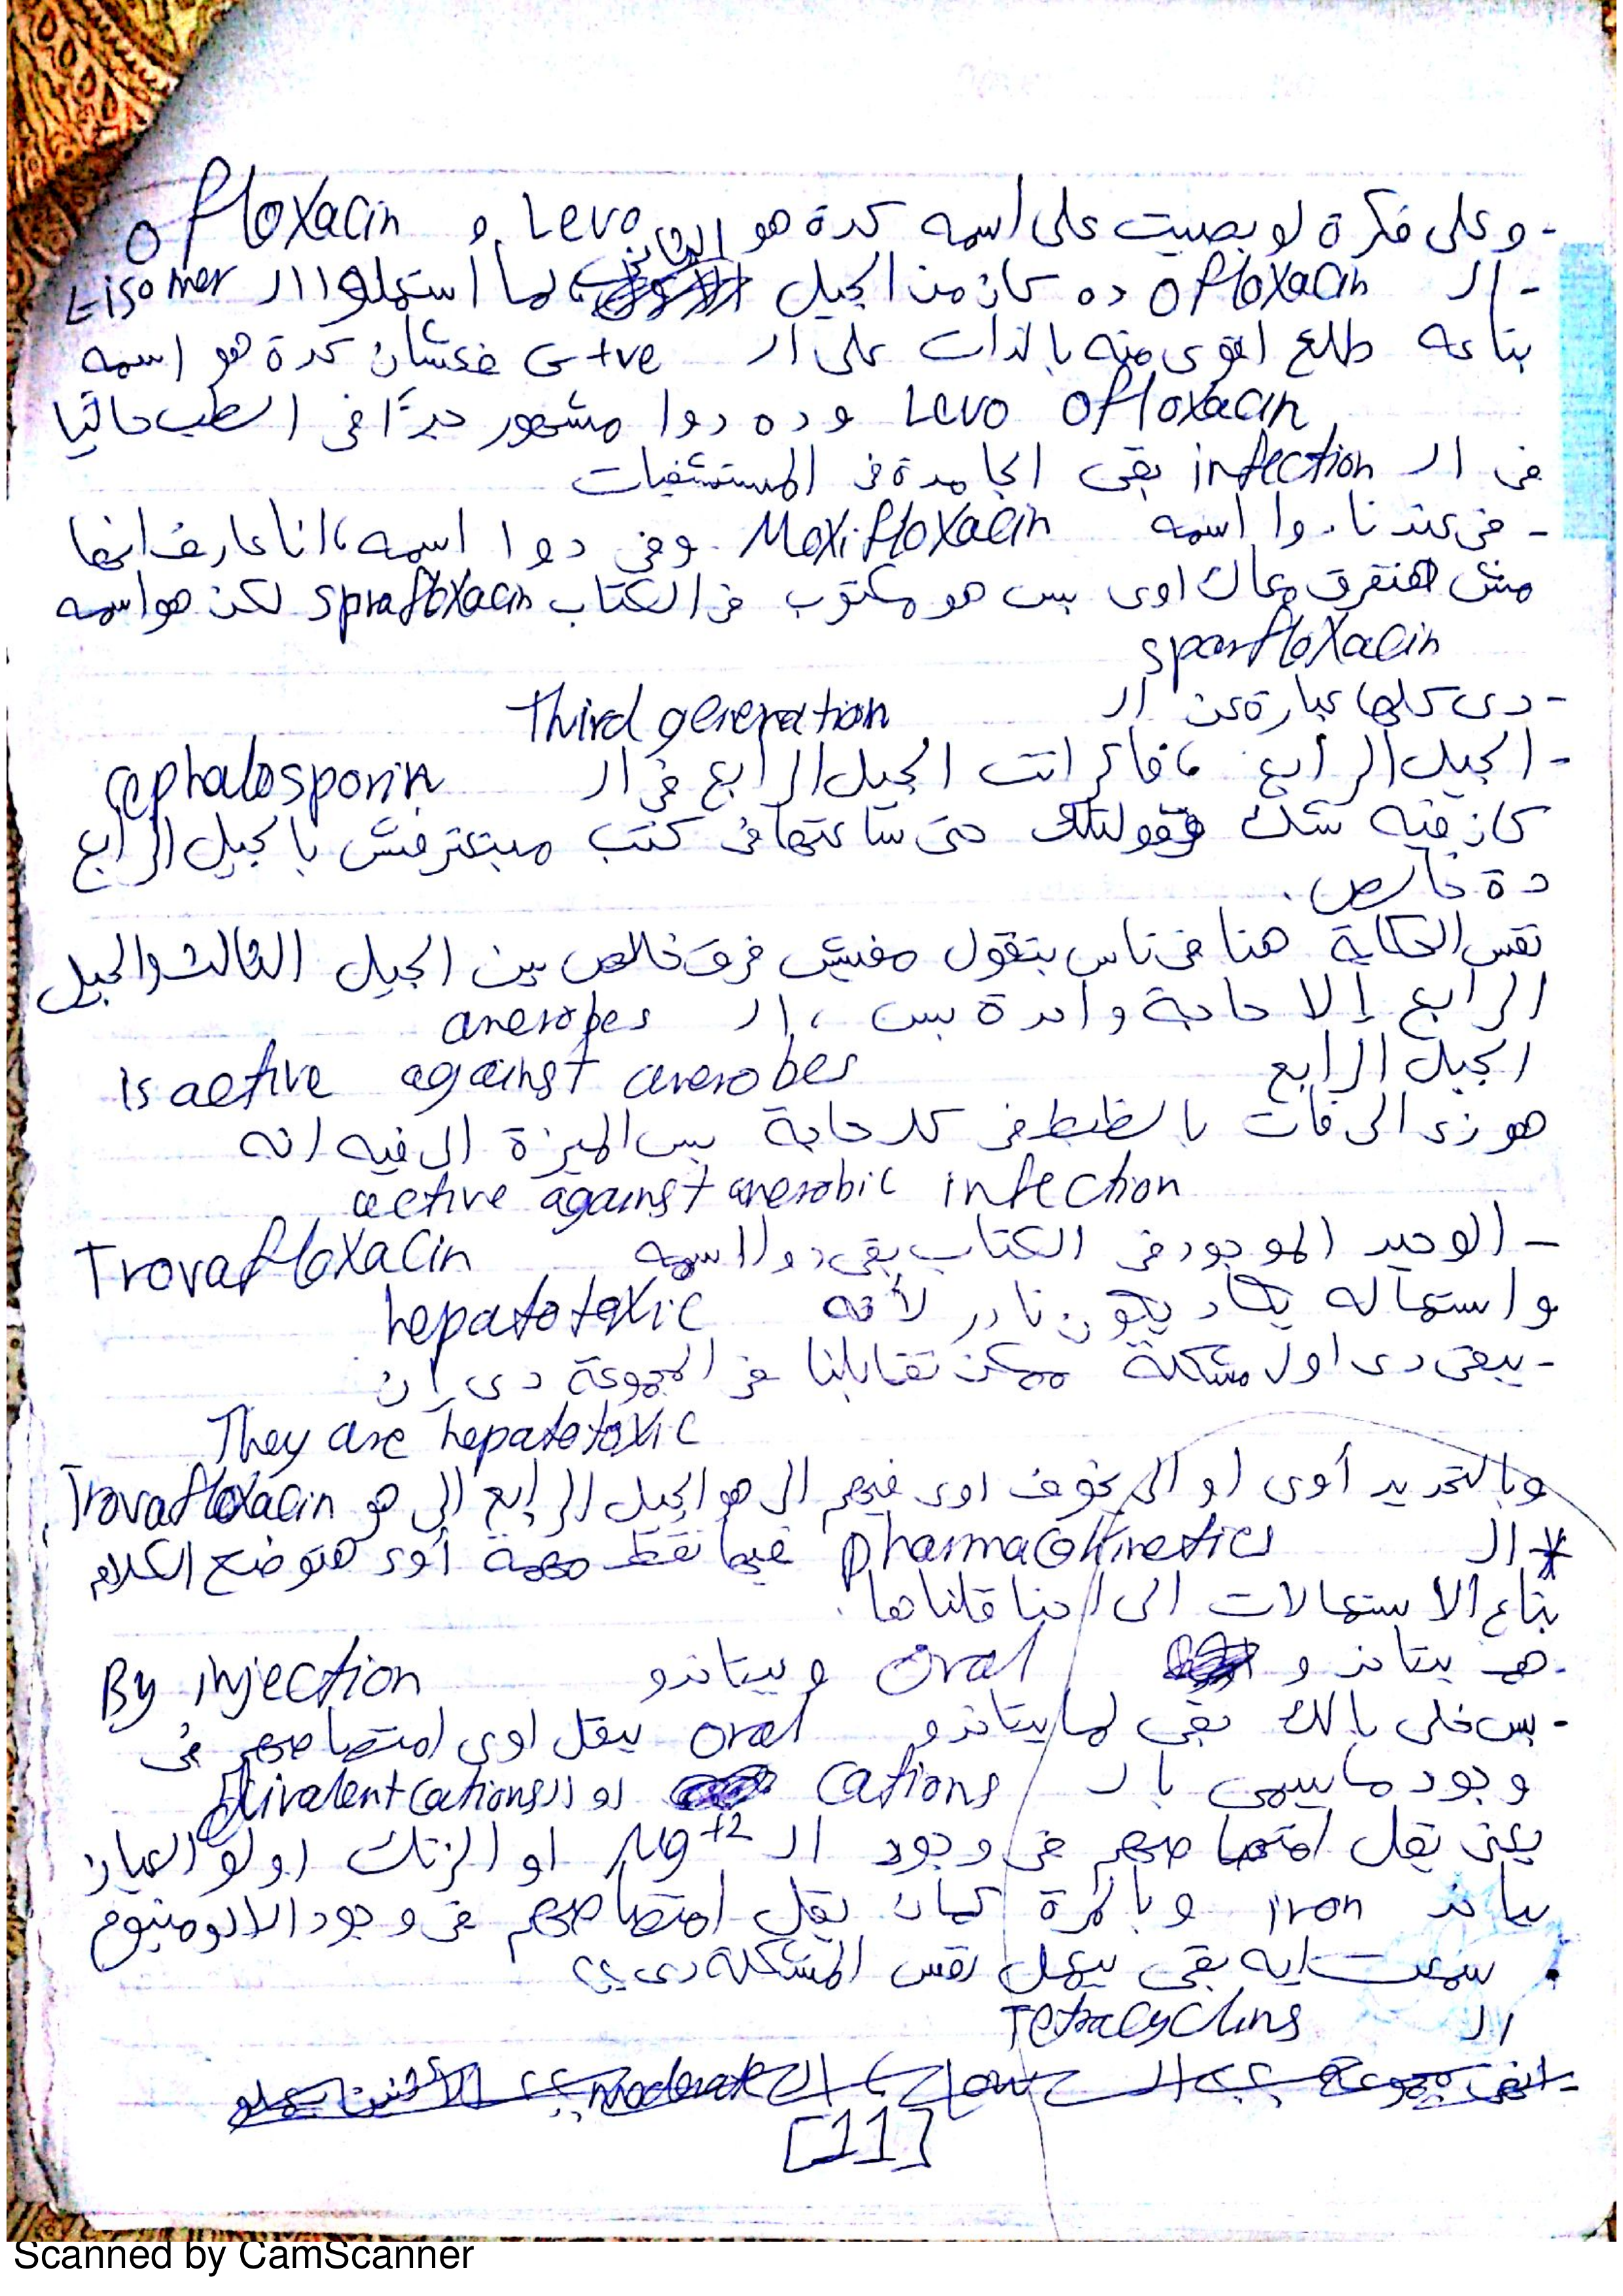 - وعلى فكرة لو بصيت على اسمه كدة هو Levo و ofloxacin
- الـ ofloxacin ده كان من الجيل الثاني، لما أستعملوا الـ L isomer
بتاعه طلع اقوى منه بالذات على الـ G+ve فعشان كدة هو اسمه
Levo ofloxacin وده دوا مشهور جدًا فى الطب حاليًا
فى الـ infection بقى الجامدة فى المستشفيات
- فى عندنا دوا اسمه Moxifloxacin وفى دوا اسمه، انا عارف انها
مش هتفرق معاك اوى بس هو مكتوب فى الكتاب sprafloxacin لكن هو اسمه
sparfloxacin
- دى كلها عبارة عن الـ Third generation
- الجيل الرابع، فاكر انت الجيل الرابع فى الـ cephalosporin
كان فيه شك وقولتلك حتى ساعتها فى كتب مبتعترفش بالجيل الرابع
دة خالص.
نفس الحكاية هنا فى ناس بتقول مفيش فرق خالص بين الجيل الثالث والجيل
الرابع إلا حاجة واحدة بس، الـ anerobes
الجيل الرابع is active against anerobes
هو زى الى فات بالظبط فى كل حاجة بس الميزة الى فيه انه
active against anerobic infection
- الوحيد الموجود فى الكتاب بقى دوا اسمه Trovafloxacin
واستعماله يكاد يكون نادر لأنه hepatotoxic
- يبقى دى اول مشكلة ممكن تقابلنا فى المجموعة دى إن
They are hepatotoxic
وبالتحديد أوى او الى يخوف اوى فيهم الى هو الجيل الرابع الى هو Trovafloxacin
* الـ pharmacokinetics فيها نقط مهمة أوى هتوضح الكلام
بتاع الاستعمالات الى احنا قلناها.
- هم بيتاخدو oral و بيتاخدو By injection
- بس خلى بالك بقى لما بيتاخدو oral بيقل اوى امتصاصهم فى
وجود ما يسمى بالـ cations او الـ (Divalent cations)
يعنى يقل امتصاصهم فى وجود الـ Mg+2 او الزنك او لو العيان
بياخد iron وبالمرة كمان يقل امتصاصهم فى وجود الالومنيوم
. سمعت ايه بقى بيعمل نفس المشكلة دى؟؟
الـ Tetracyclins
[11]
Scanned by CamScanner